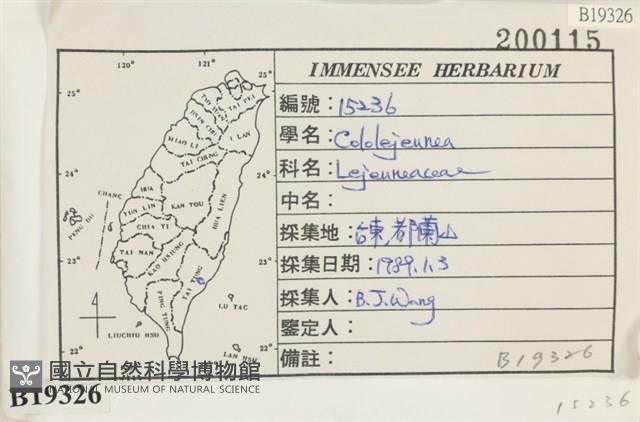 B19326
200115
IMMENSEE HERBARIUM
編號：15236
學名：Cololejeunea
科名：Lejeuneaceae
中名：
採集地：台東,都蘭山
採集日期：1989.1.3
採集人：B.J.Wang
鑒定人：
備註：
B19326
120°
121°
25°
25°
24°
24°
23°
23°
22°
22°
TAI PEI
I LAN
MIAO LI
TAI CHUNG
CHANG
HUA
YUN LIN
KAN TOU
HUA LIEN
CHIA YI
PENG HU
TAI NAN
KAO HSIUNG
TAI TUNG
PING TUNG
LU TAO
LIUCHIU HSU
LAN HSU
國立自然科學博物館
NATIONAL MUSEUM OF NATURAL SCIENCE
B19326
15236